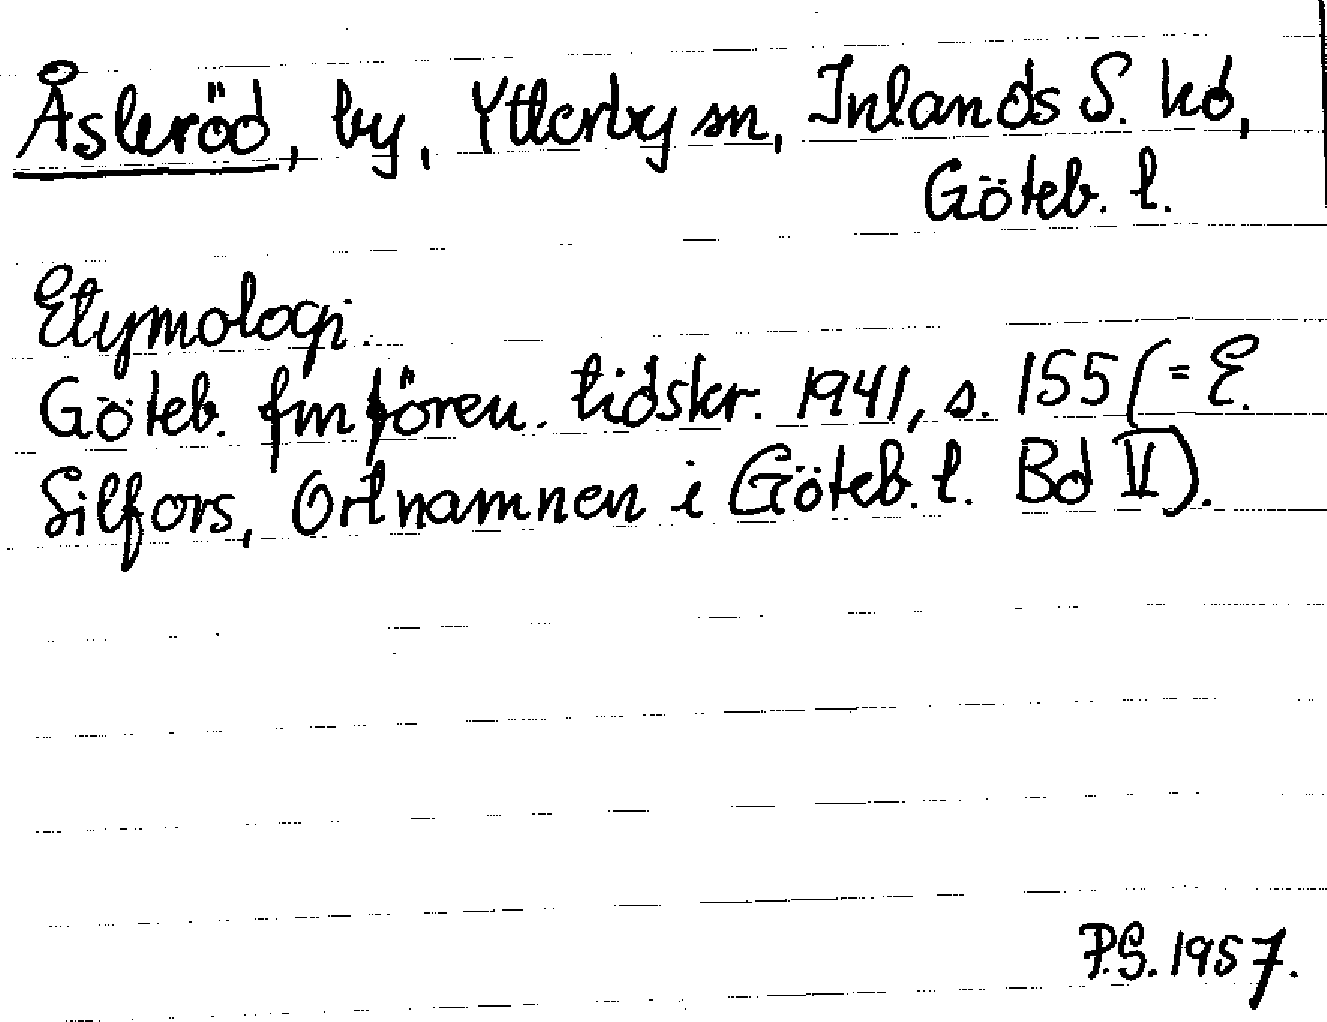 Åsleröd, by, Ytterby sn, Inlands S. hd,
Göteb. l.
Etymologi.
Göteb. fmfören. tidskr. 1941, s. 155 (= E.
Silfors, Ortnamnen i Göteb. l. Bd V).
P.S. 1957.